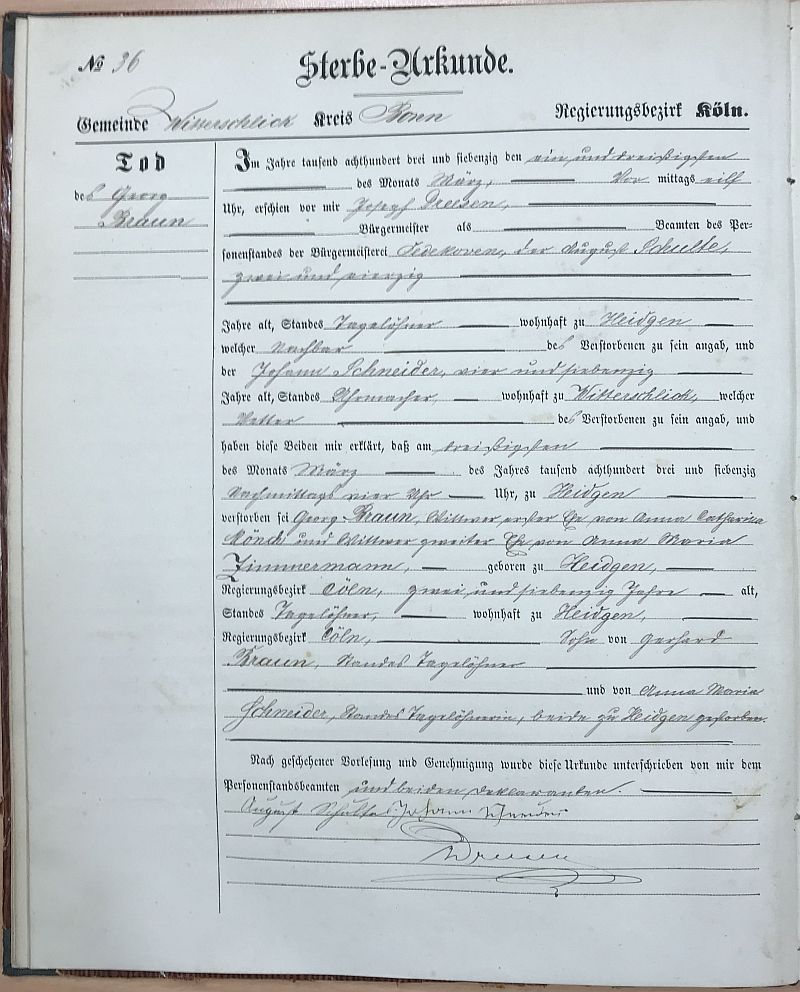 № 36
Sterbe-Urkunde.
Gemeinde Witterschlick Kreis Bonn Regierungsbezirk Köln.
Tod
des Georg
Braun
Im Jahre tausend achthundert drei und siebenzig den ein und dreißigsten
des Monats März, Vor mittags eilf
Uhr, erschien vor mir Joseph Dreesen,
Bürgermeister als Beamten des Per-
sonenstandes der Bürgermeisterei Oedekoven, der August Schulte,
zwei und vierzig
Jahre alt, Standes Tagelöhner wohnhaft zu Heidgen
welcher Nachbar des Verstorbenen zu sein angab, und
der Johann Schneider, vier und siebenzig
Jahre alt, Standes Uhrmacher, wohnhaft zu Witterschlick, welcher
Vetter des Verstorbenen zu sein angab, und
haben diese Beiden mir erklärt, daß am dreißigsten
des Monats März des Jahres tausend achthundert drei und siebenzig
Nachmittags vier Uhr Uhr, zu Heidgen
verstorben sei Georg Braun, Wittwer erster Ehe von Anna Catharina
Mönch und Wittwer zweiter Ehe von Anna Maria
Zimmermann, geboren zu Heidgen,
Regierungsbezirk Cöln, zwei und siebenzig Jahre alt,
Standes Tagelöhner, wohnhaft zu Heidgen,
Regierungsbezirk Cöln, Sohn von Gerhard
Braun, Standes Tagelöhner
und von Anna Maria
Schneider, Standes Tagelöhnerin, beide zu Heidgen gestorben.
Nach geschehener Vorlesung und Genehmigung wurde diese Urkunde unterschrieben von mir dem
Personenstandsbeamten und beiden Deklaranten.
August Schulte Johann Schneider
Dreesen